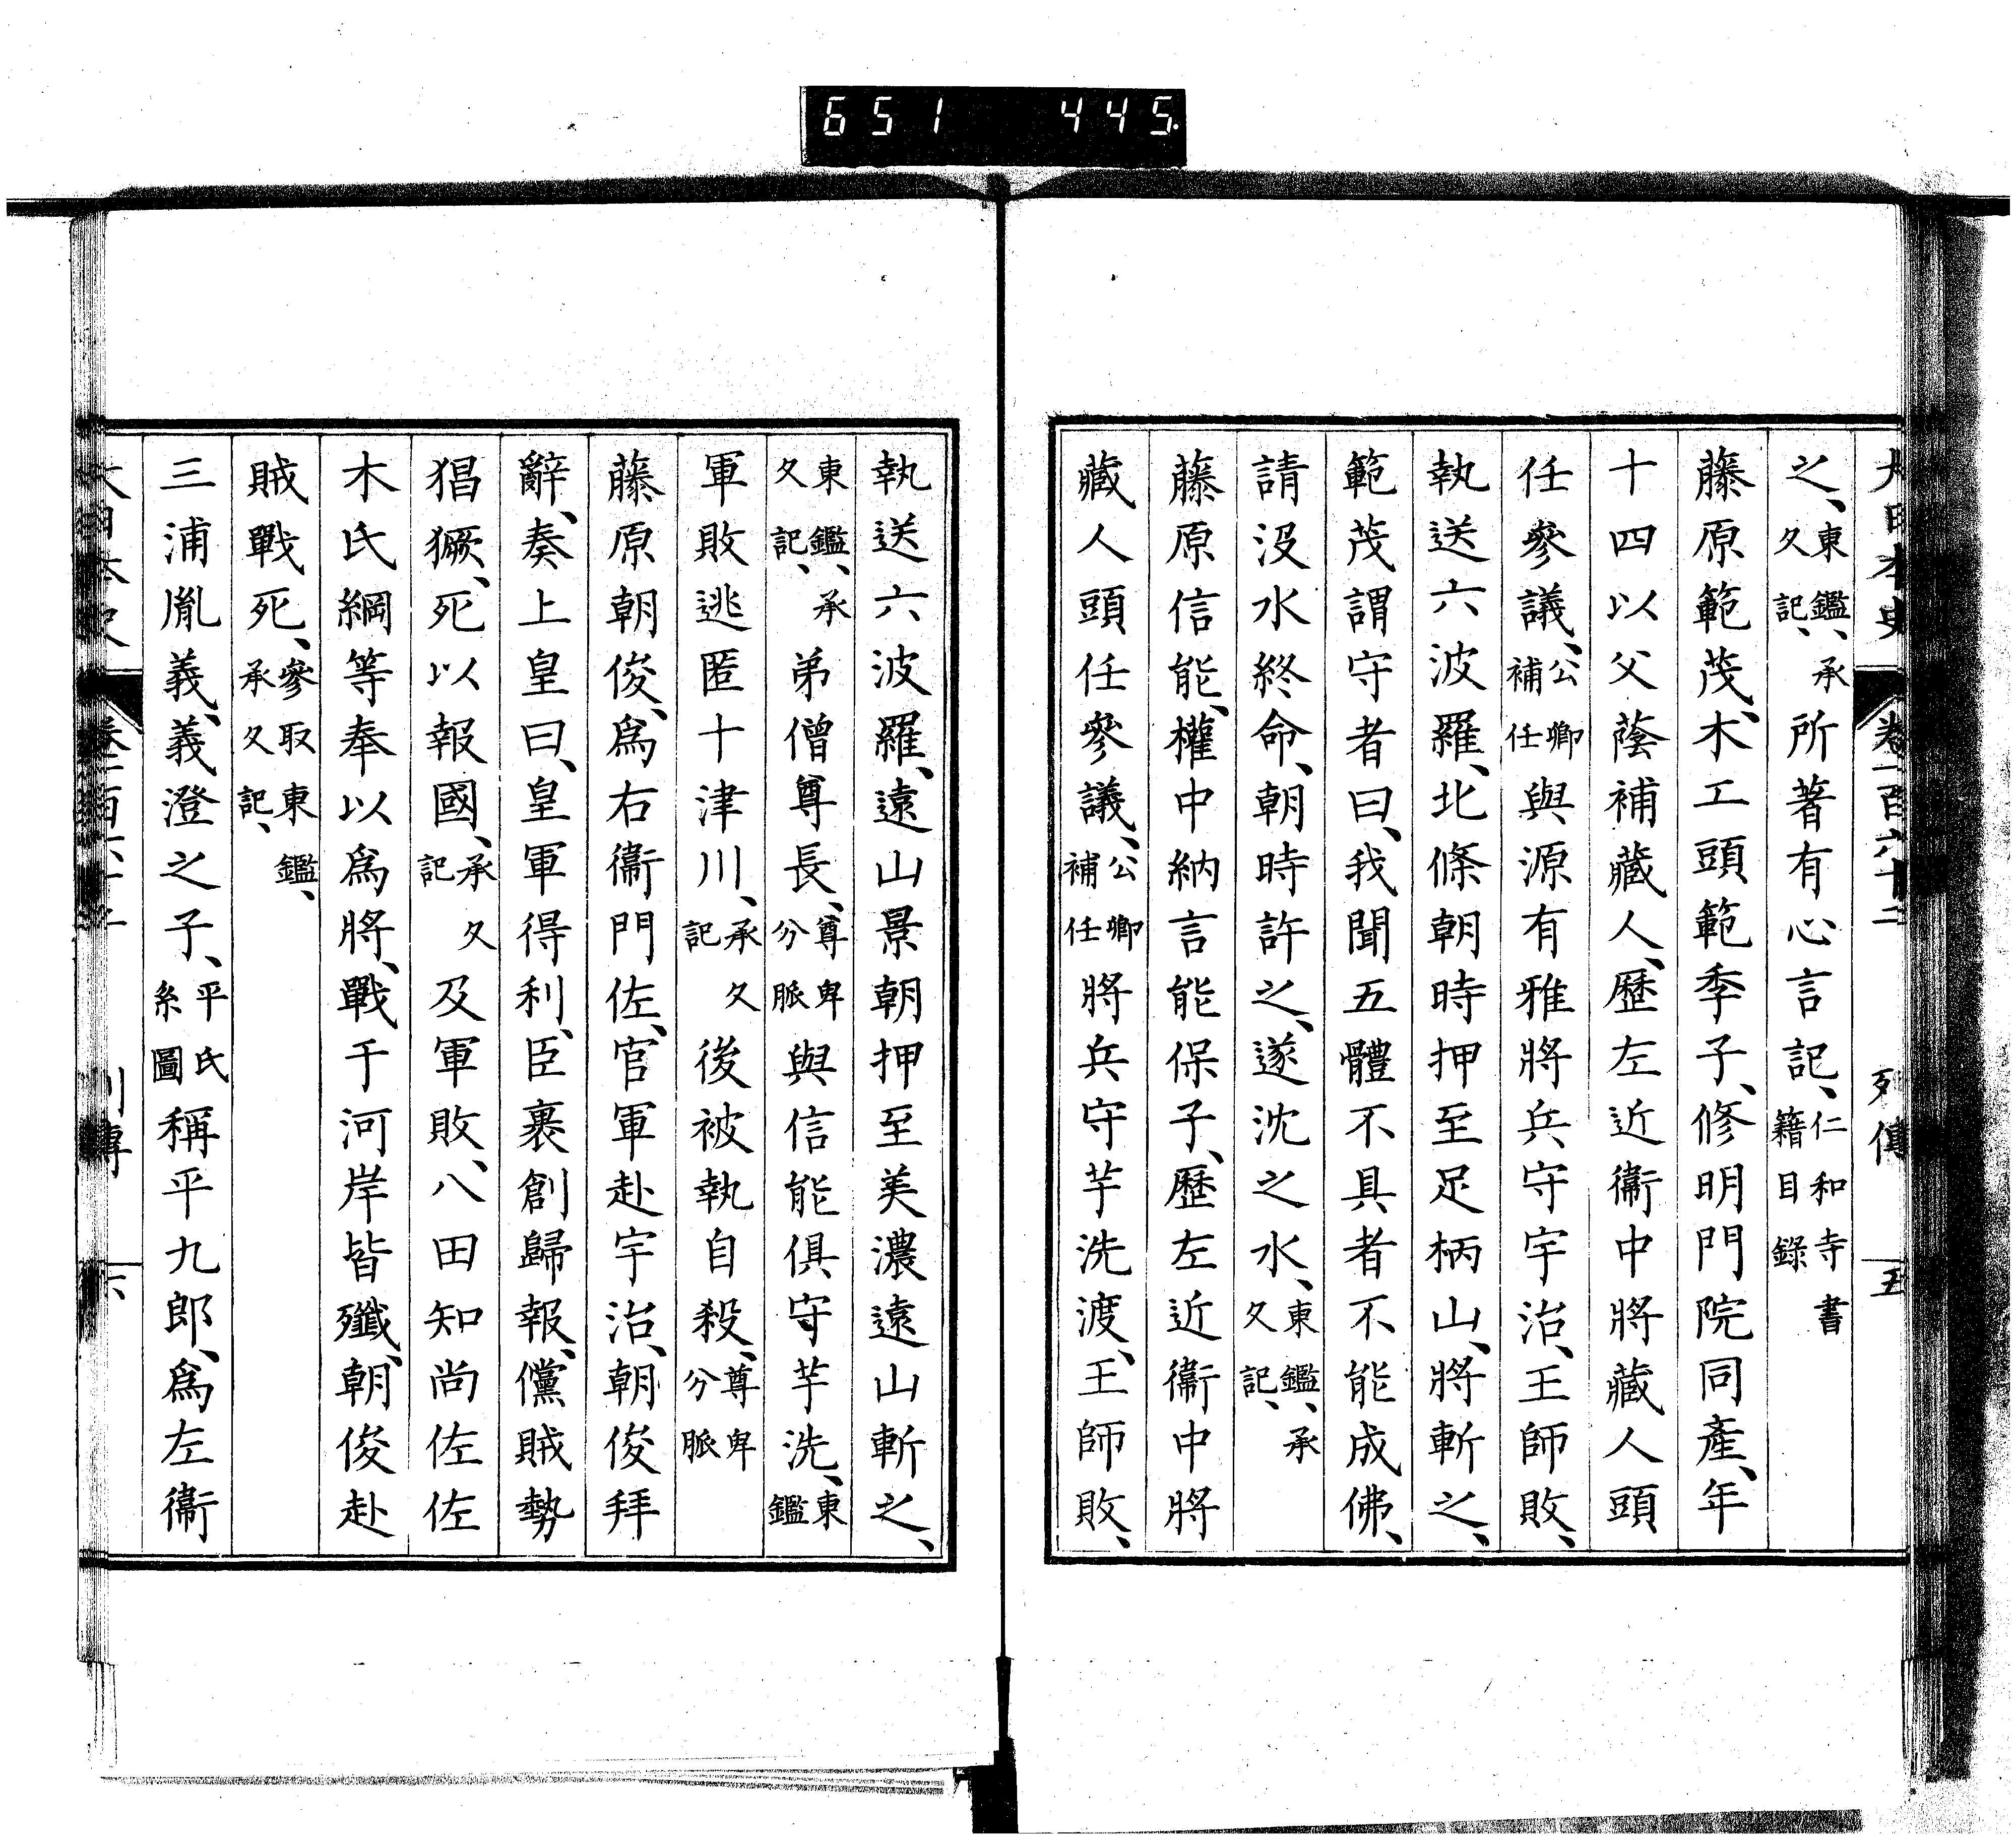 651 445.
大日本史 卷一百六十二 列傳 五
之、東鑑、承久記、所著有心言記、仁和寺書籍目錄
藤原範茂、木工頭範季子、修明門院同產、年
十四以父蔭補藏人、歷左近衞中將藏人頭
任參議、公卿補任與源有雅將兵守宇治、王師敗、
執送六波羅、北條朝時押至足柄山、將斬之、
範茂謂守者曰、我聞五體不具者不能成佛、
請沒水終命、朝時許之、遂沈之水、東鑑、承久記、
藤原信能、權中納言能保子、歷左近衞中將
藏人頭任參議、公卿補任將兵守芋洗渡、王師敗、
執送六波羅、遠山景朝押至美濃遠山斬之、
東鑑、承久記、弟僧尊長、尊卑分脈與信能俱守芋洗、東鑑
軍敗逃匿十津川、承久記後被執自殺、尊卑分脈
藤原朝俊、爲右衞門佐、官軍赴宇治、朝俊拜
辭、奏上皇曰、皇軍得利、臣裹創歸報、儻賊勢
猖獗、死以報國、承久記及軍敗、八田知尚佐佐
木氏綱等奉以爲將、戰于河岸皆殲、朝俊赴
賊戰死、參取東鑑、承久記、
三浦胤義、義澄之子、平氏系圖稱平九郎、爲左衞